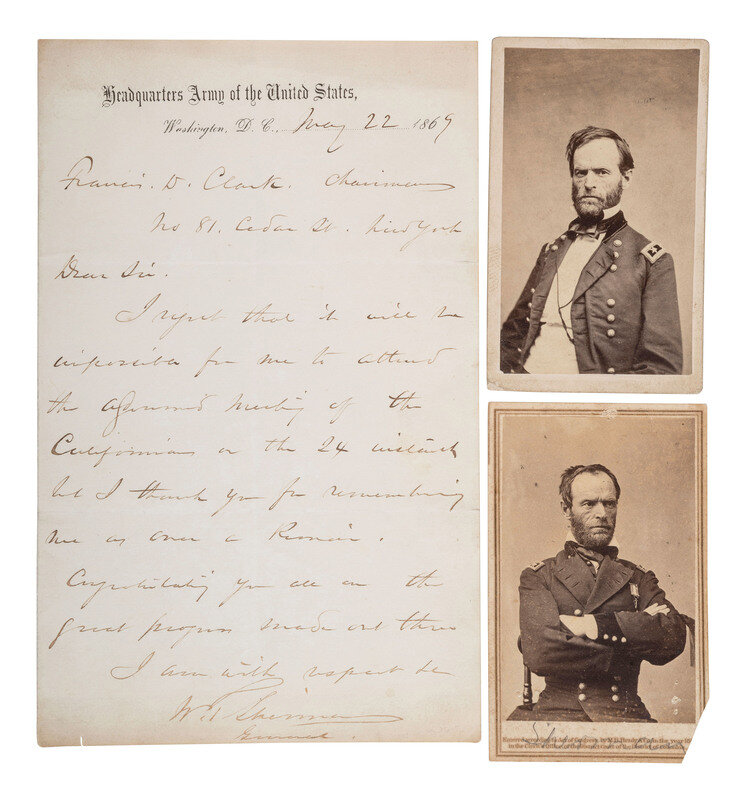 Headquarters Army of the United States,
Washington, D. C., May 22 1869
Francis. D. Clark. Chairman
No 81. Cedar St. New York
Dear Sir.
I regret that it will be
impossible for me to attend
the adjourned meeting of the
Californians on the 24 instant
but I thank you for remembering
me as once a
Congratulating you all on the
great progress made out there
I am with respect &c
W. T. Sherman
General.
Entered according to act of Congress by M.B. Brady & Co in the year 18
in the Clerk's Office of the District court of the District of Columbia